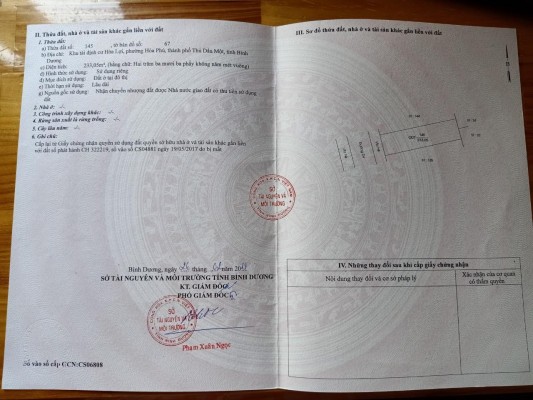 II. Thửa đất, nhà ở và tài sản khác gắn liền với đất
1. Thửa đất:
a) Thửa đất số: 345 , tờ bản đồ số: 67
b) Địa chỉ: Khu tái định cư Hòa Lợi, phường Hòa Phú, thành phố Thủ Dầu Một, tỉnh Bình
Dương
c) Diện tích: m², (bằng chữ: Hai trăm ba mươi ba phẩy không năm mét vuông)
d) Hình thức sử dụng: Sử dụng riêng
đ) Mục đích sử dụng: Đất ở tại đô thị
e) Thời hạn sử dụng: Lâu dài
g) Nguồn gốc sử dụng: Nhận chuyển nhượng đất được Nhà nước giao đất có thu tiền sử dụng
đất
2. Nhà ở: -/-
3. Công trình xây dựng khác: -/-
4. Rừng sản xuất là rừng trồng: -/-
5. Cây lâu năm: -/-
6. Ghi chú:
Cấp lại từ Giấy chứng nhận quyền sử dụng đất quyền sở hữu nhà ở và tài sản khác gắn liền
với đất số phát hành CH 322219; số vào sổ CS04881 ngày 19/05/2017 do bị mất.
SỞ
TÀI NGUYÊN VÀ
MÔI TRƯỜNG
Bình Dương, ngày tháng năm
SỞ TÀI NGUYÊN VÀ MÔI TRƯỜNG TỈNH BÌNH DƯƠNG
KT. GIÁM ĐỐC
PHÓ GIÁM ĐỐC
SỞ
TÀI NGUYÊN VÀ
MÔI TRƯỜNG
Phạm Xuân Ngọc
Số vào sổ cấp GCN: CS06808
III. Sơ đồ thửa đất, nhà ở và tài sản khác gắn liền với đất
IV. Những thay đổi sau khi cấp giấy chứng nhận
Nội dung thay đổi và cơ sở pháp lý
Xác nhận của cơ quan
có thẩm quyền